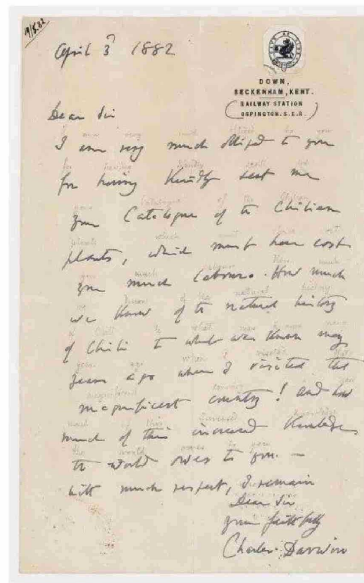 April 3d 1882
DOWN,
BECKENHAM, KENT.
RAILWAY STATION
ORPINGTON. S.E.R.
Dear Sir
I am very much obliged to you
for having kindly sent me
your Catalogue of the Chilian
plants, which must have cost
you much labour. How much
we know of the natural history
of Chili to what was known many
years ago when I visited that
magnificent country! and how
much of this increased knowledge
the world owes to you.—
With much respect, I remain
Dear Sir
yours faithfully
Charles Darwin